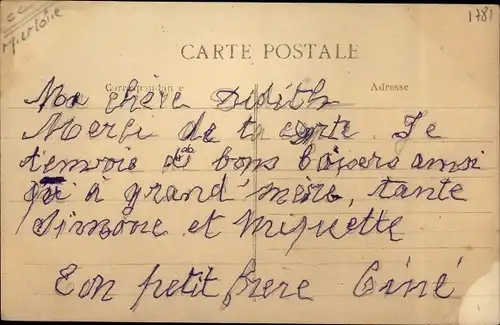 M. et Loire
1781
CARTE POSTALE
Correspondance
Adresse
Ma chère Didith
Merci de ta carte. Je
t'envoie de bons baisers ainsi
qu'à grand'mère, tante
Simone et Miquette
Ton petit frere Giné